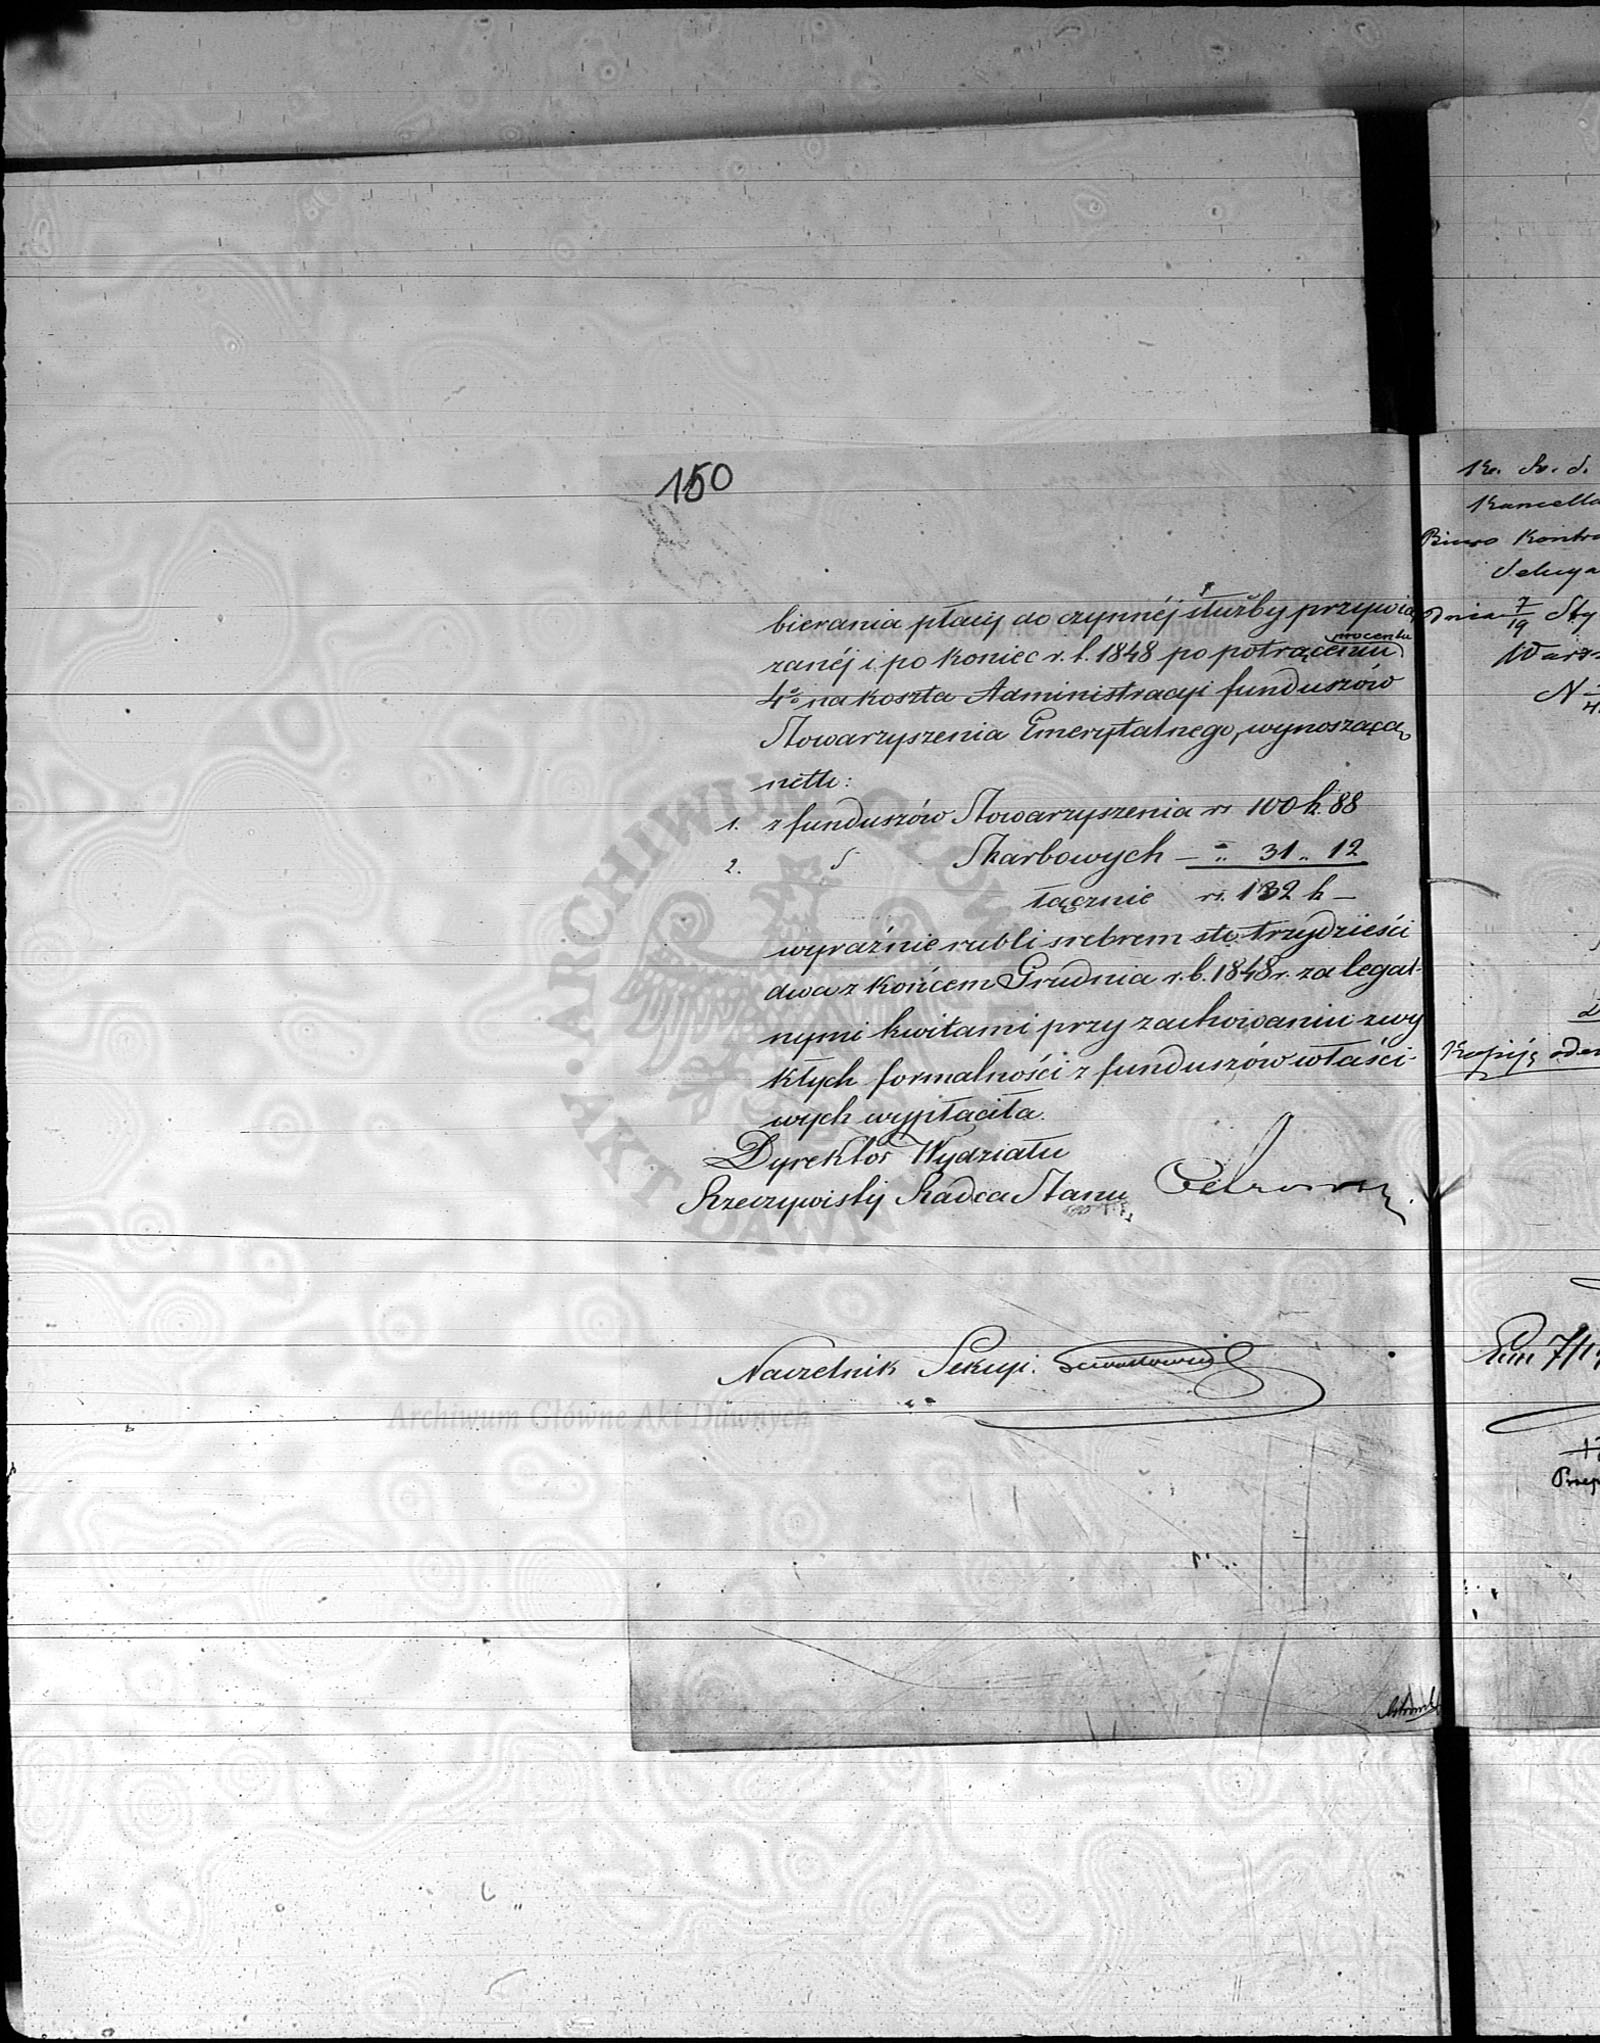 150
bierania płacy do czynnéj służby przywią
zanéj i po koniec r. b. 1848 po potrąceniu procentu
4% na koszta Administracyi funduszów
Stowarzyszenia Emerytalnego, wynoszącą
netto:
1. z funduszów Stowarzyszenia rs 100 k. 88
2. " Skarbowych — " 31 " 12
łącznie rs. 132 k —
wyraźnie rubli srebrem sto trzydzieści
dwa z końcem Grudnia r. b. 1848 r. za legal-
nymi kwitami przy zachowaniu zwy
kłych formalności z funduszów właści-
wych wypłaciła.
Dyrektor Wydziału
Rzeczywisty Radca Stanu
Naczelnik Sekcyi.
ARCHIWUM GŁÓWNE AKT DAWNYCH
Archiwum Główne Akt Dawnych
Kancella
Biuro Kontro
Sekcya
Dnia 7/19 Sty
Warsz
N
Kopiją oder